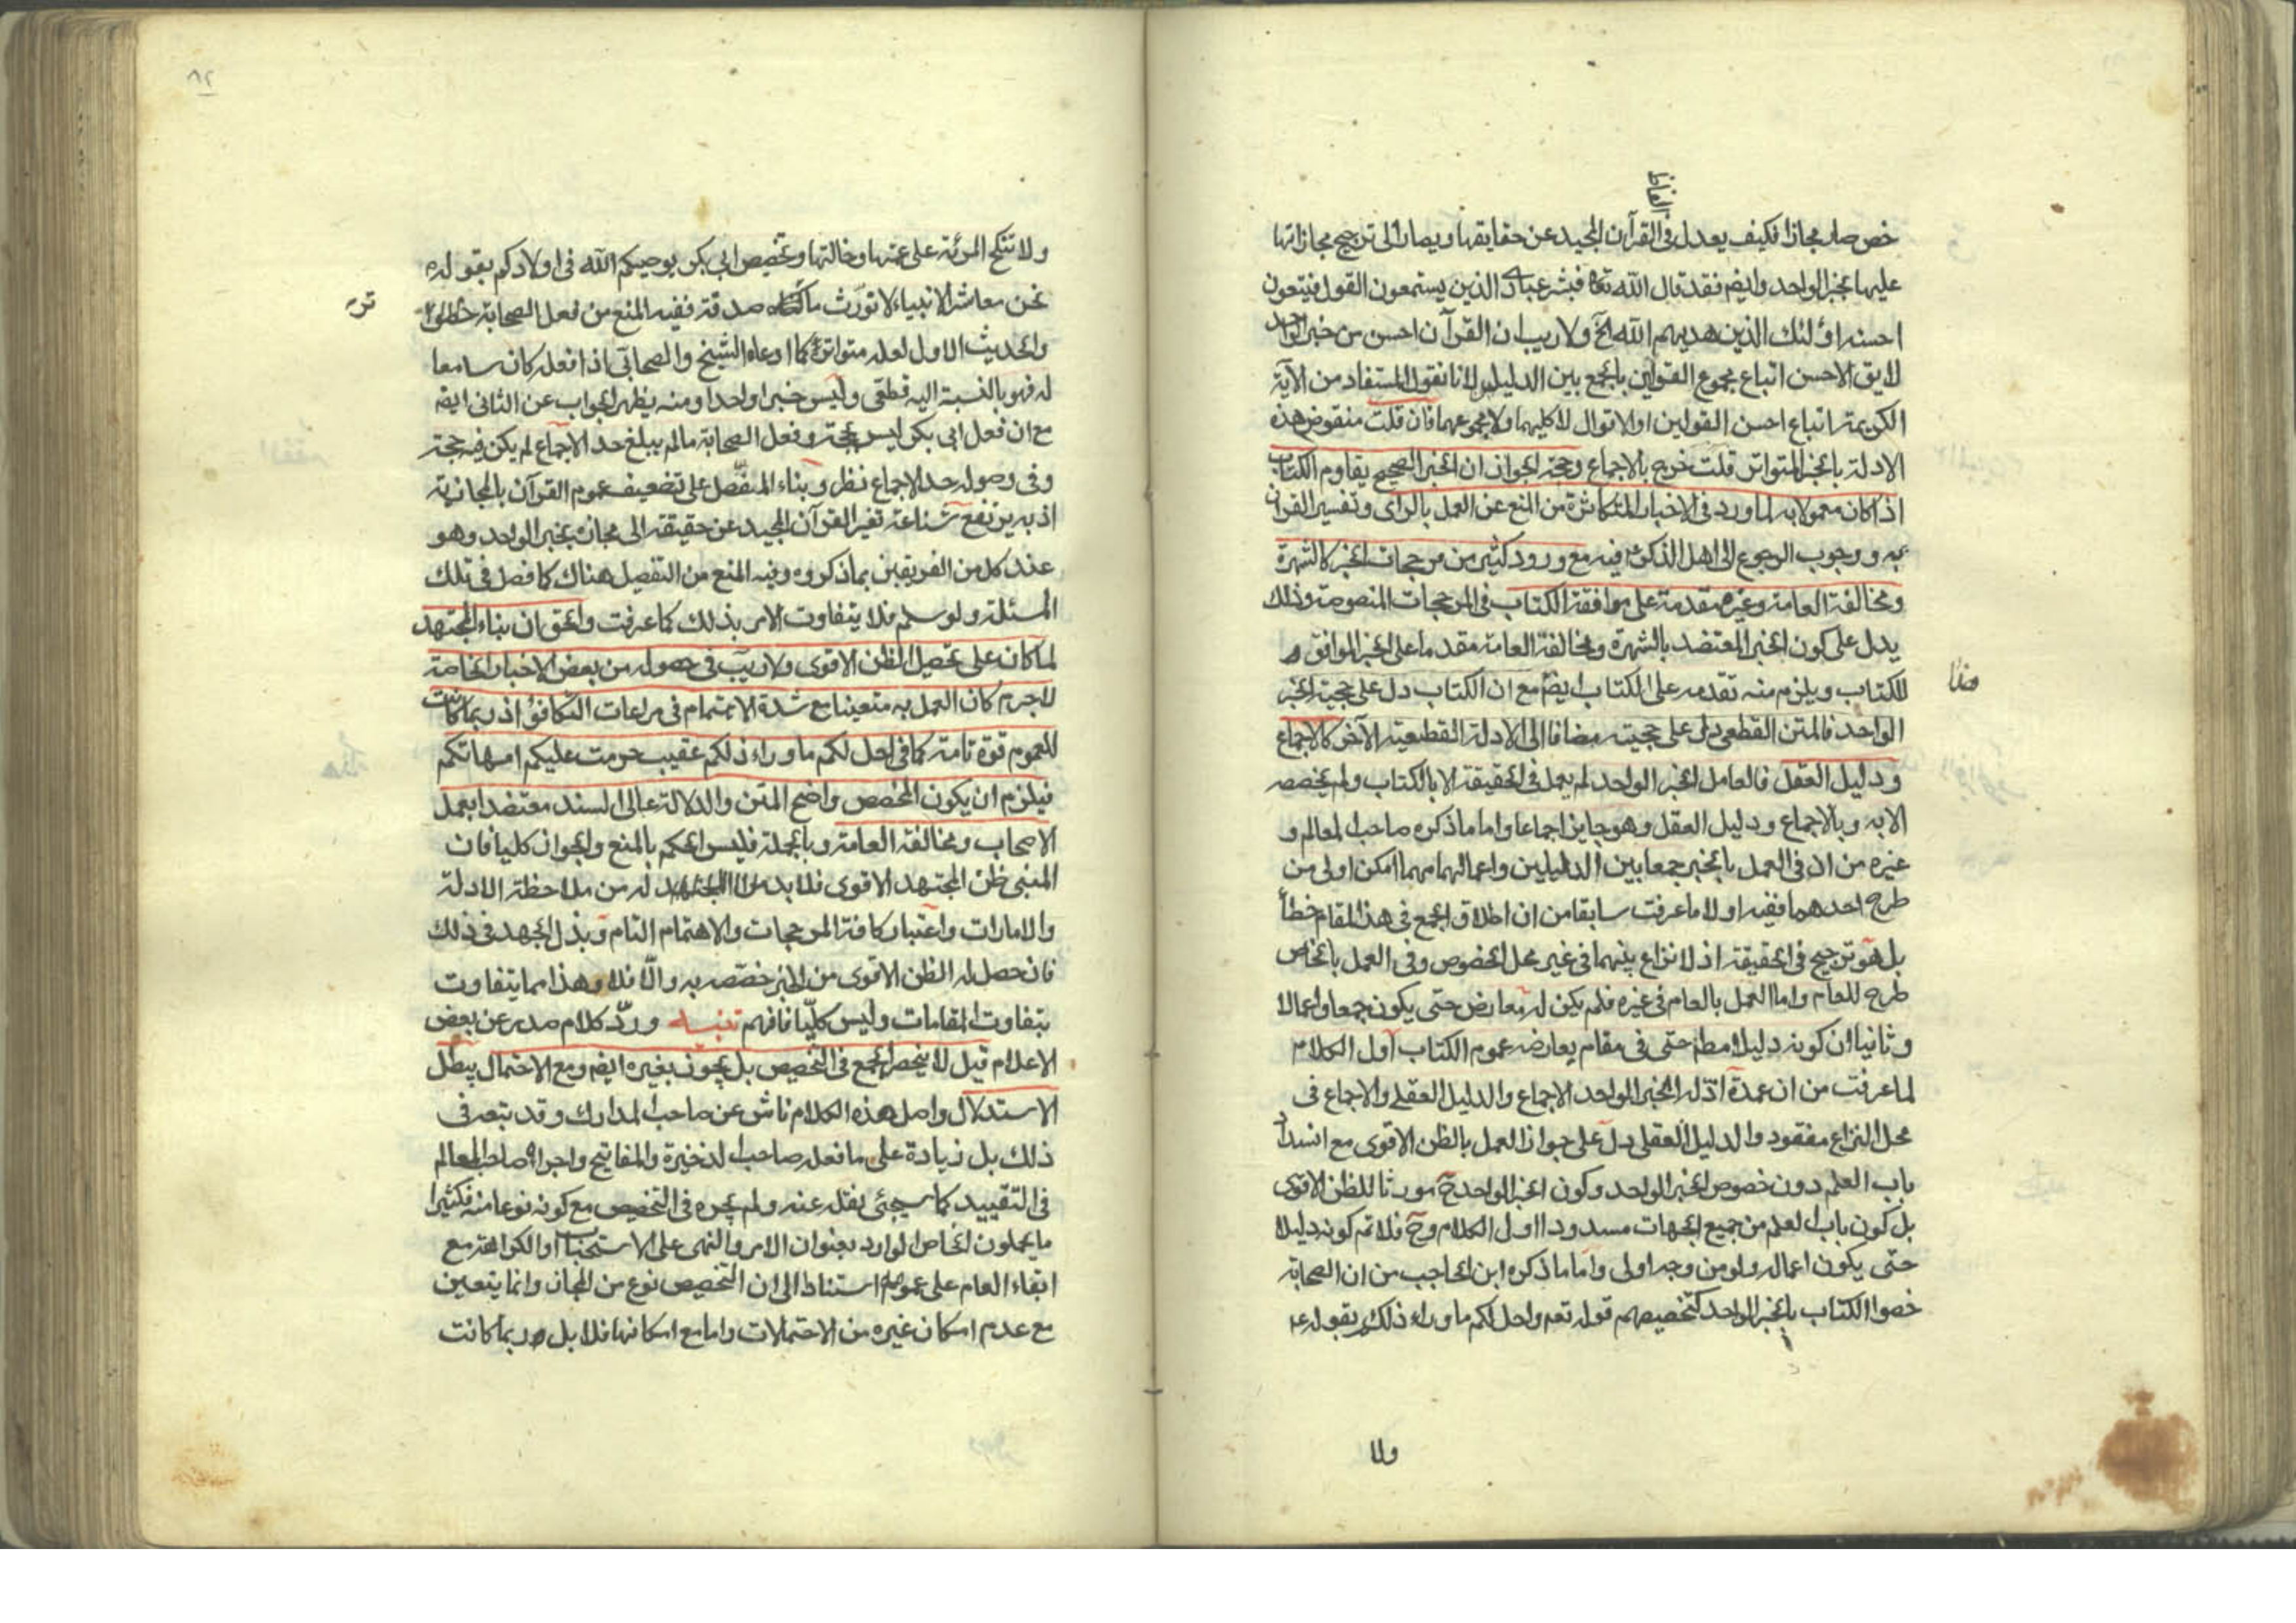 الفاظ
خص صار مجازا فكيف يعدل فى القرآن المجيد عن حقايقها ويصار الى ترجيح مجازاتها
عليها بخبر الواحد وايضم فقد قال الله تعا فبشر عباد الذين يستمعون القول فيتبعون
احسنه اولئك الذين هديهم الله آلخ ولا ريب ان القرآن احسن من خبر الواحد
لا يق الاحسن اتباع مجموع القولين بالجمع بين الدليلين لانا نقول المستفاد من الآية
الكريمة اتباع احسن القولين او الاقوال لا كليهما ولا مجموعهما فان قلت منقوض هذه
الادلة بالخبر المتواتر قلت خرج بالاجماع وحجة الجواز ان الخبر الصحيح يقاوم الكتاب
اذا كان معمولا به لما ورد فى الاخبار المتكاثرة من المنع عن العمل بالراى وتفسير القرآن
به ووجوب الرجوع الى اهل الذكر فيه مع ورود كثير من مرجحات الخبر كالشهرة
ومخالفة العامة وغيره مقدمة على موافقة الكتاب فى المرجحات المنصوصة وذلك
يدل على كون الخبر المعتضد بالشهرة ومخالفة العامة مقدما على الخبر الموافق
للكتاب ويلزم منه تقدمه على الكتاب ايضم مع ان الكتاب دل على حجية الخبر
الواحد فالمتن القطعى دل على حجيته مضافا الى الادلة القطعية الآخر كالاجماع
ودليل العقل فالعامل الخبر الواحد لم يعمل فى الحقيقة الا بالكتاب ولم يخصصه
الا به وبالاجماع ودليل العقل وهو جايز اجماعا واما ما ذكره صاحب المعالم و
غيره من ان فى العمل بالخبر جمعا بين الدليلين واعمالهما مهما امكن اولى من
طرح احدهما ففيه اولا ما عرفت سابقا من ان اطلاق الجمع فى هذا المقام خطأ
بل هو ترجيح فى الحقيقة اذ لا نزاع بينهما فى غير محل الخصوص وفى العمل بالخاص
طرح للعام واما العمل بالعام فى غيره فلم يكن له معارض حتى يكون جمعا واعمالا
وثانيا ان كونه دليلا مطم حتى فى مقام يعارضه عموم الكتاب اول الكلام
لما عرفت من ان عمدة ادلة الخبر الواحد الاجماع والدليل العقلى والاجماع فى
محل النزاع مفقود والدليل العقلى دل على جواز العمل بالظن الاقوى مع انسداد
باب العلم دون خصوص الخبر الواحد وكون الخبر الواحد ح مورثا للظن الاقوى
بل كون باب العلم من جميع الجهات مسدودا اول الكلام وح فلا تم كونه دليلا
حتى يكون اعماله ولو من وجه اولى واما ما ذكره ابن الحاجب من ان الصحابة
خصوا الكتاب بالخبر الواحد كتخصيصهم قوله تعم واحل لكم ما وراء ذلكم بقوله ع
ولا
٨٢
ولا تنكح المرئة على عمتها وخالتها وتخصيص ابى بكر يوصيكم الله فى اولادكم بقوله
نحن معاشر الانبياء لا نورث ما صدقة ففيه المنع من فعل الصحابة
والحديث الاول لعله متواتر كما ادعاه الشيخ والصحابى اذا فعله كان سامعا
له فهو بالنسبة اليه قطعى وليس خبرا واحدا ومنه يظهر الجواب عن الثانى ايضم
مع ان فعل ابى بكر ليس بحجة وفعل الصحابة ما لم يبلغ حد الاجماع لم يكن فيه حجة
وفى وصوله حد الاجماع نظر وبناء المفصل على تضعيف عموم القرآن بالمجازية
اذ به يرتفع شناعة تغير القرآن المجيد عن حقيقته الى مجازه بخبر الواحد وهو
عند كل من الفريقين بما ذكروه وفيه المنع من التفصيل هناك كما فصل فى تلك
المسئلة ولو سلم فلا يتفاوت الامر بذلك كما عرفت والحق ان بناء المجتهد
لما كان على تحصيل الظن الاقوى ولا ريب فى حصوله من بعض الاخبار الخاصة
لاجرم كان العمل به متعينا مع شدة الاهتمام فى مراعات التكافؤ اذ ربما كانت
للعموم قوة تامة كما فى احل لكم ما وراء ذلكم عقيب حرمت عليكم امهاتكم
فيلزم ان يكون المخصص واضح المتن والدلالة عالى السند معتضدا بعمل
الاصحاب ومخالفة العامة وبالجملة فليس الحكم بالمنع والجواز كليا فان
المبنى ظن المجتهد الاقوى فلا بد له من ملاحظة الادلة
والامارات واعتبار كافة المرجحات والاهتمام التام وبذل الجهد فى ذلك
فان حصل له الظن الاقوى من الخبر خصصه به والا فلا وهذا مما يتفاوت
بتفاوت المقامات وليس كليا فافهم تنبيه وردّ كلام صدر عن بعض
الاعلام قيل لا ينحصر الجمع فى التخصيص بل يجوز بغيره ايضم ومع الاحتمال يبطل
الاستدلال واصل هذه الكلام ناش عن صاحب المدارك وقد يتعر فى
ذلك بل زيادة على ما فعله صاحب الذخيرة والمفاتيح واجراه صاحب المعالم
فى التقييد كما سيجئى نقله عنه ولم يجره فى التخصيص مع كونه نوعا منه فكثيرا
ما يحملون الخاص الوارد بعنوان الامر والنهى على الاستحباب او الكراهة مع
ابقاء العام على عمومه استنادا الى ان التخصيص نوع من المجاز وانما يتعين
مع عدم امكان غيره من الاحتمالات واما مع امكانها فلا بل ربما كانت